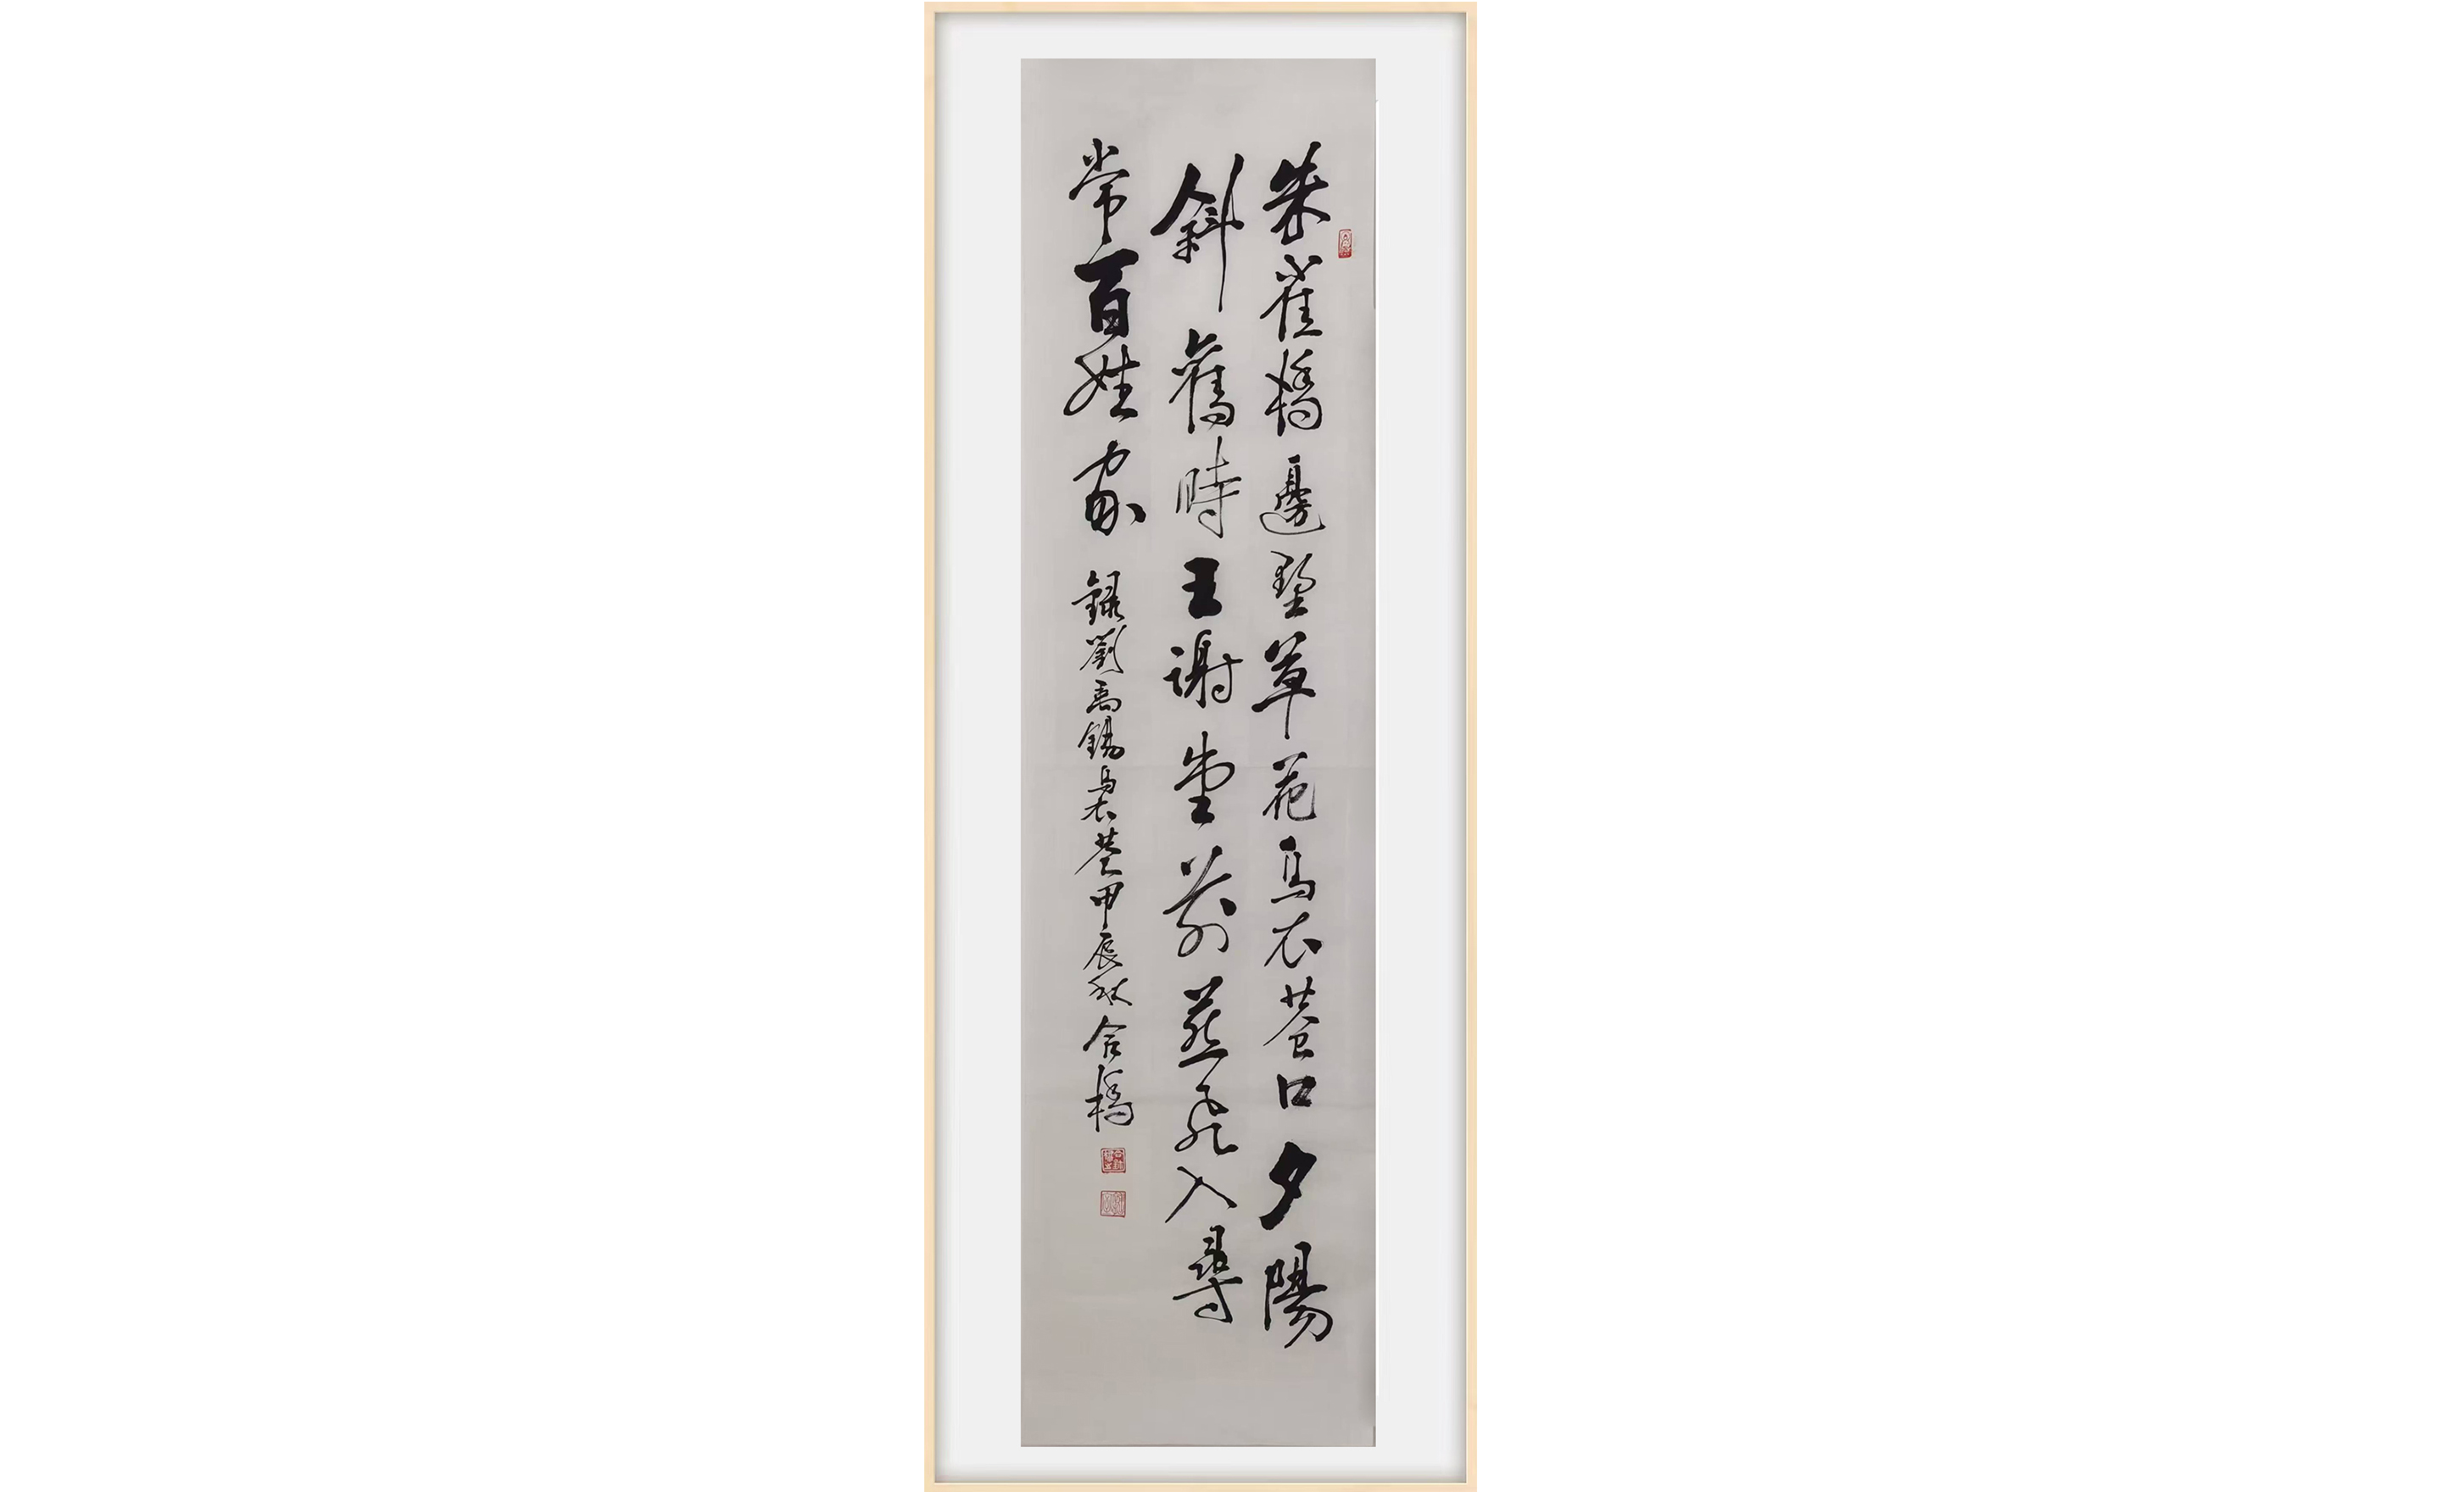 朱雀橋邊野草花烏衣巷口夕陽
斜舊時王謝堂前燕飛入尋
常百姓家
錄劉禹錫烏衣巷甲辰秋合橋